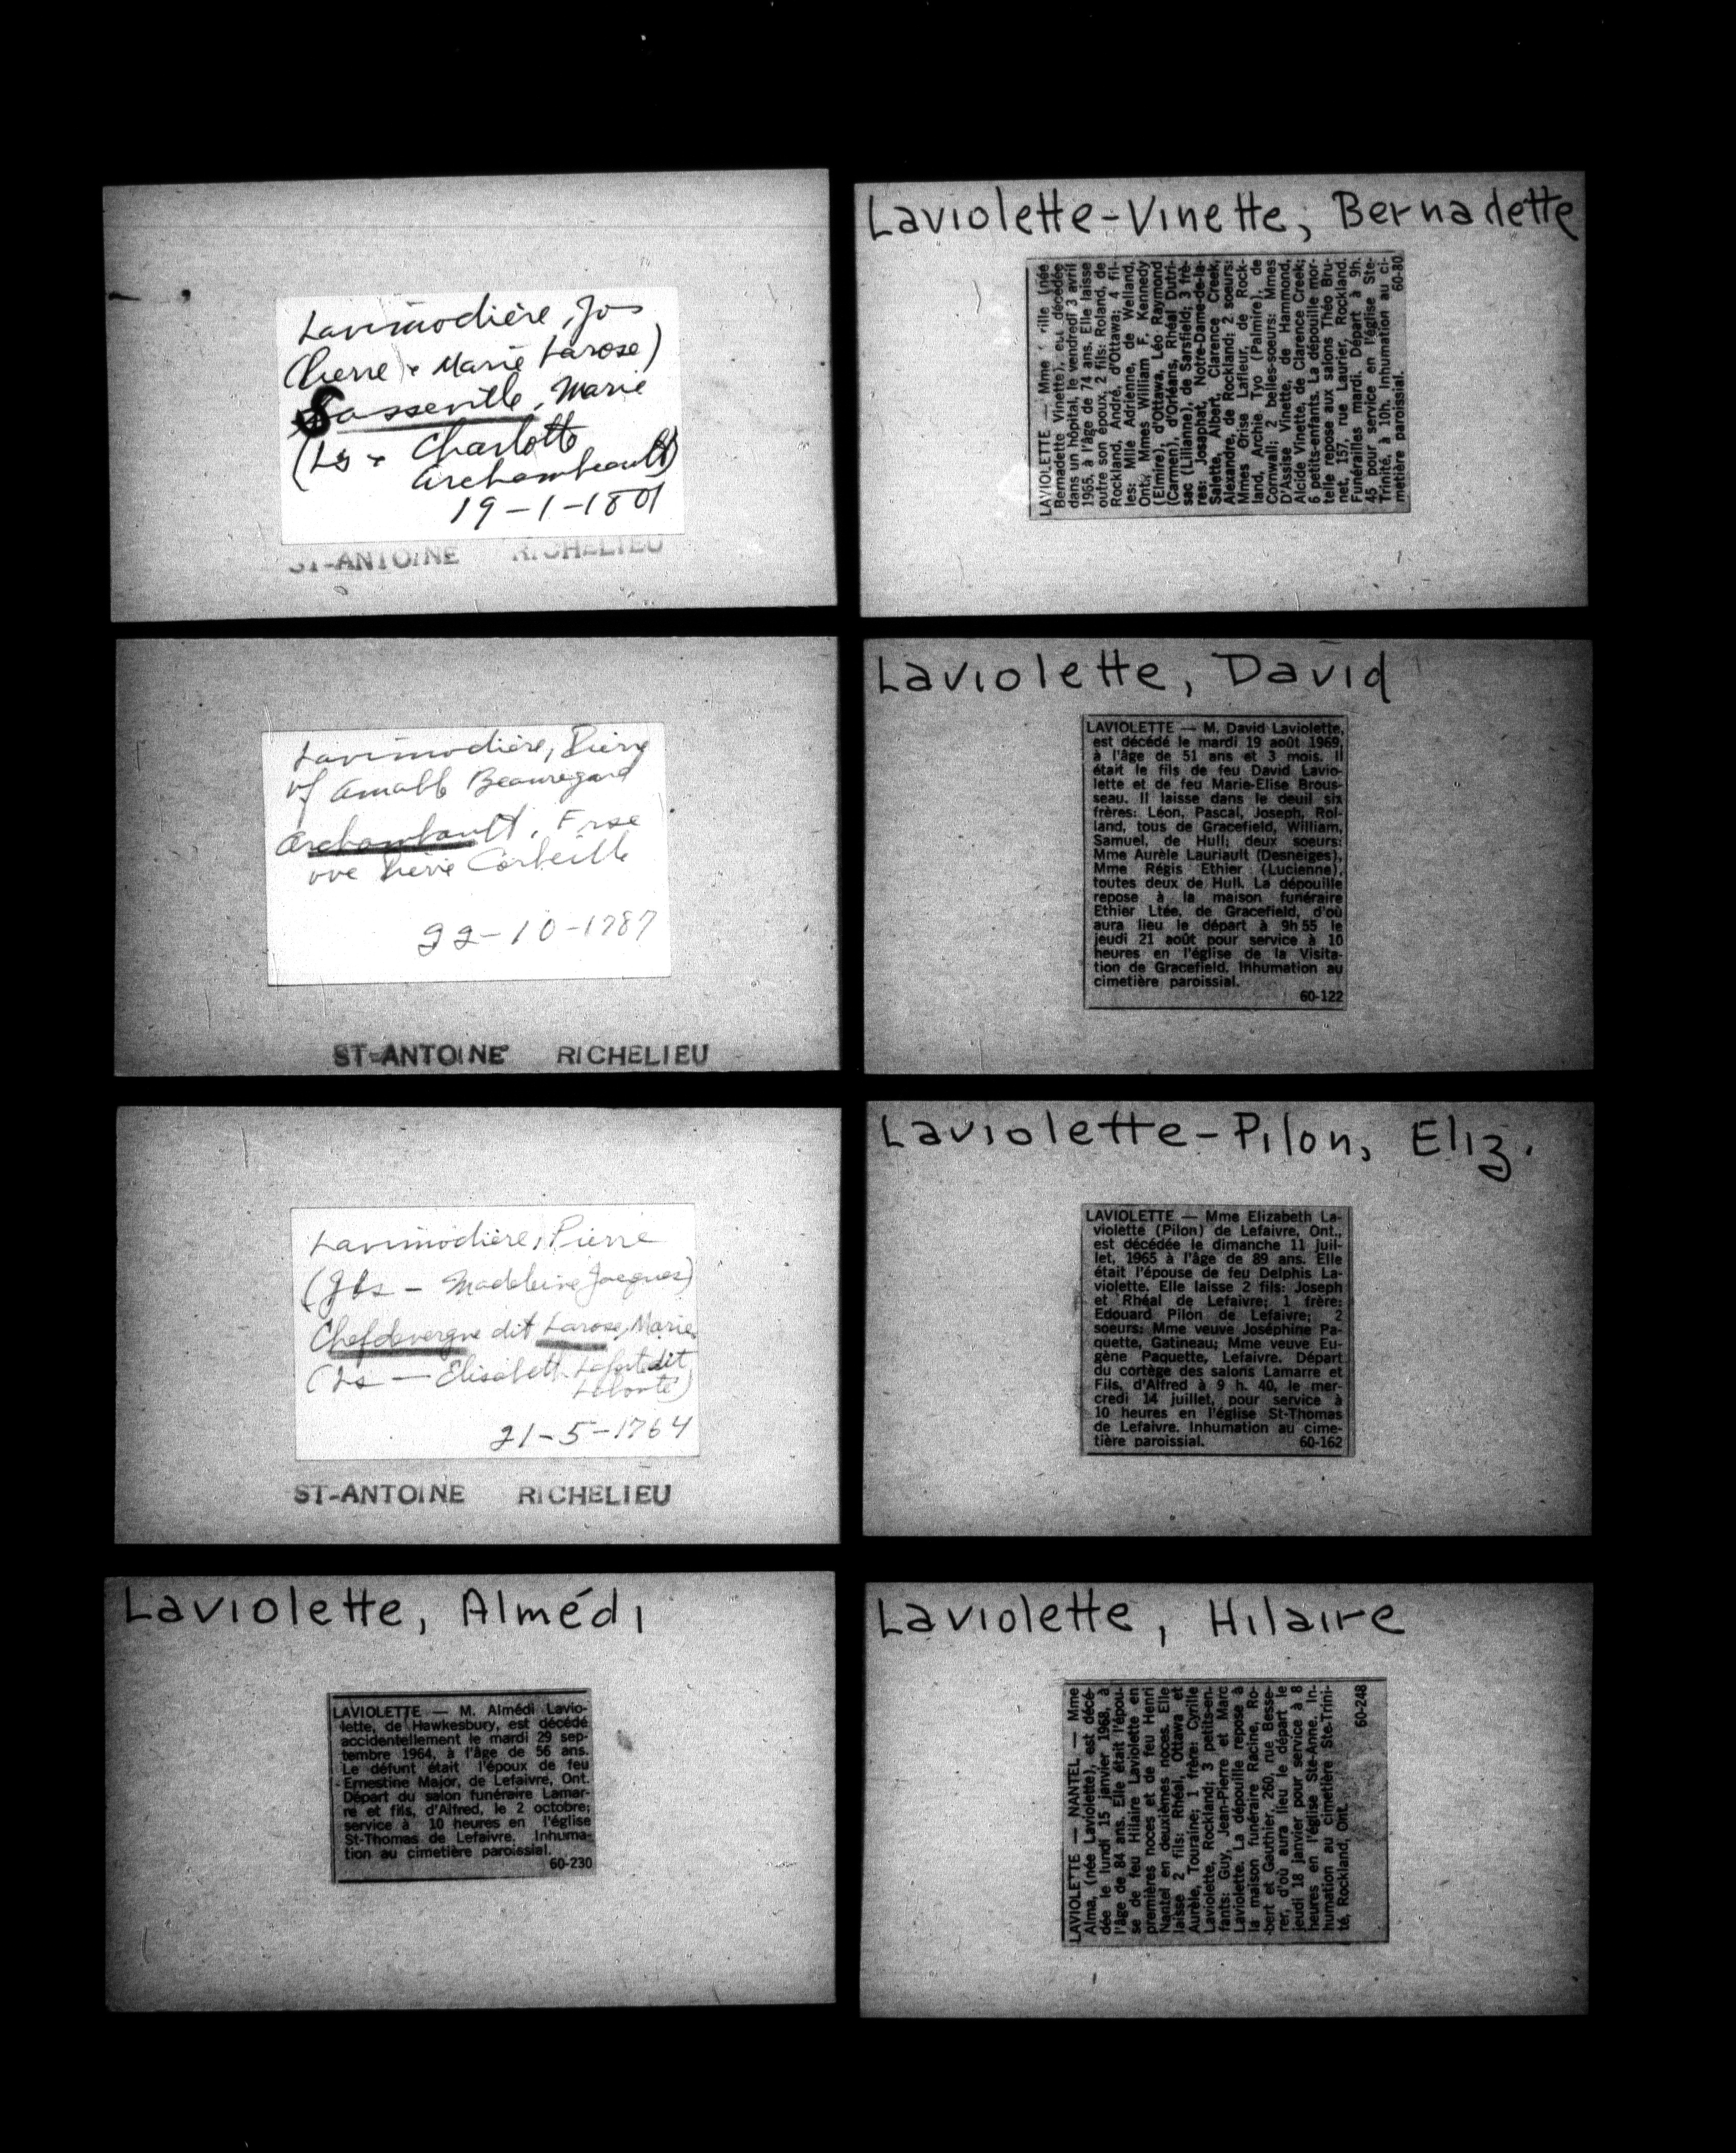 Lavimodière, Jos
(Pierre & Marie Larose)
Sasseville, Marie
(Ls & Charlotte
Archambeault)
19-1-1801
ST-ANTOINE RICHELIEU
Lavimodière, Pierre
vf Amable Beauregard
Archambault, Frse
vve Pierre Corbeille
22-10-1787
ST-ANTOINE RICHELIEU
Lavimodière, Pierre
(Jbs - Madeleine Jacques)
Chefdevergne dit Larose, Marie
(Ls — Elisabeth Lafort dit
Laforte)
21-5-1764
ST-ANTOINE RICHELIEU
Laviolette, Almédi
LAVIOLETTE — M. Almédi Lavio-
lette, de Hawkesbury, est décédé
accidentellement le mardi 29 sep-
tembre 1964, à l'âge de 56 ans.
Le défunt était l'époux de feu
Ernestine Major, de Lefaivre, Ont.
Départ du salon funéraire Lamar-
re et fils, d'Alfred, le 2 octobre;
service à 10 heures en l'église
St-Thomas de Lefaivre. Inhuma-
tion au cimetière paroissial.
60-230
Laviolette-Vinette, Bernadette
LAVIOLETTE — Mme rille (née
Bernadette Vinette), est décédée
dans un hôpital, le vendredi 3 avril
1965, à l'âge de 74 ans. Elle laisse
outre son époux, 2 fils: Roland, de
Rockland, André, d'Ottawa; 4 fil-
les: Mlle Adrienne, de Welland,
Ont., Mmes William F. Kennedy
(Elmire), d'Ottawa, Léo Raymond
(Carmen), d'Orléans, Rhéal Dutri-
sac (Lilianne), de Sarsfield; 3 frè-
res: Josaphat, Notre-Dame-de-la-
Salette, Albert, Clarence Creek,
Alexandre, de Rockland; 2 soeurs:
Mmes Orise Lafleur, de Rock-
land, Archie Tyo (Palmire), de
Cornwall; 2 belles-soeurs: Mmes
D'Assise Vinette, de Hammond,
Alcide Vinette, de Clarence Creek;
6 petits-enfants. La dépouille mor-
telle repose aux salons Théo Bru-
net, 157, rue Laurier, Rockland.
Funérailles mardi. Départ à 9h.
45 pour service en l'église Ste-
Trinité, à 10h. Inhumation au ci-
metière paroissial. 60-80
Laviolette, David
LAVIOLETTE — M. David Laviolette,
est décédé le mardi 19 août 1969,
à l'âge de 51 ans et 3 mois. Il
était le fils de feu David Lavio-
lette et de feu Marie-Elise Brous-
seau. Il laisse dans le deuil six
frères: Léon, Pascal, Joseph, Rol-
land, tous de Gracefield, William,
Samuel, de Hull; deux soeurs:
Mme Aurèle Lauriault (Desneiges),
Mme Régis Ethier (Lucienne),
toutes deux de Hull. La dépouille
repose à la maison funéraire
Ethier Ltée, de Gracefield, d'où
aura lieu le départ à 9h 55 le
jeudi 21 août pour service à 10
heures en l'église de la Visita-
tion de Gracefield. Inhumation au
cimetière paroissial.
60-122
Laviolette-Pilon, Eliz.
LAVIOLETTE — Mme Elizabeth La-
violette (Pilon) de Lefaivre, Ont.,
est décédée le dimanche 11 juil-
let, 1965 à l'âge de 89 ans. Elle
était l'épouse de feu Delphis La-
violette. Elle laisse 2 fils: Joseph
et Rhéal de Lefaivre; 1 frère:
Edouard Pilon de Lefaivre; 2
soeurs: Mme veuve Joséphine Pa-
quette, Gatineau; Mme veuve Eu-
gène Paquette, Lefaivre. Départ
du cortège des salons Lamarre et
Fils, d'Alfred à 9 h. 40, le mer-
credi 14 juillet, pour service à
10 heures en l'église St-Thomas
de Lefaivre. Inhumation au cime-
tière paroissial. 60-162
Laviolette, Hilaire
LAVIOLETTE — NANTEL — Mme
Alma, (née Laviolette), est décé-
dée le lundi 15 janvier 1968, à
l'âge de 84 ans. Elle était l'épou-
se de feu Hilaire Laviolette en
premières noces et de feu Henri
Nantel en deuxièmes noces. Elle
laisse 2 fils: Rhéal, Ottawa et
Aurèle, Touraine; 1 frère: Cyrille
Laviolette, Rockland; 3 petits-en-
fants: Guy, Jean-Pierre et Marc
Laviolette. La dépouille repose à
la maison funéraire Racine, Ro-
bert et Gauthier, 260, rue Besse-
rer, d'où aura lieu le départ le
jeudi 18 janvier pour service à 8
heures en l'église Ste-Anne. In-
humation au cimetière Ste-Trini-
té, Rockland, Ont.
60-248